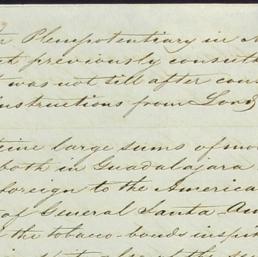 Plenipotentiary in
previously
was not till after
instructions from Lord
large sums of
both in Guadalajara
foreign to the America
of General Santa An
the tobacco-bonds